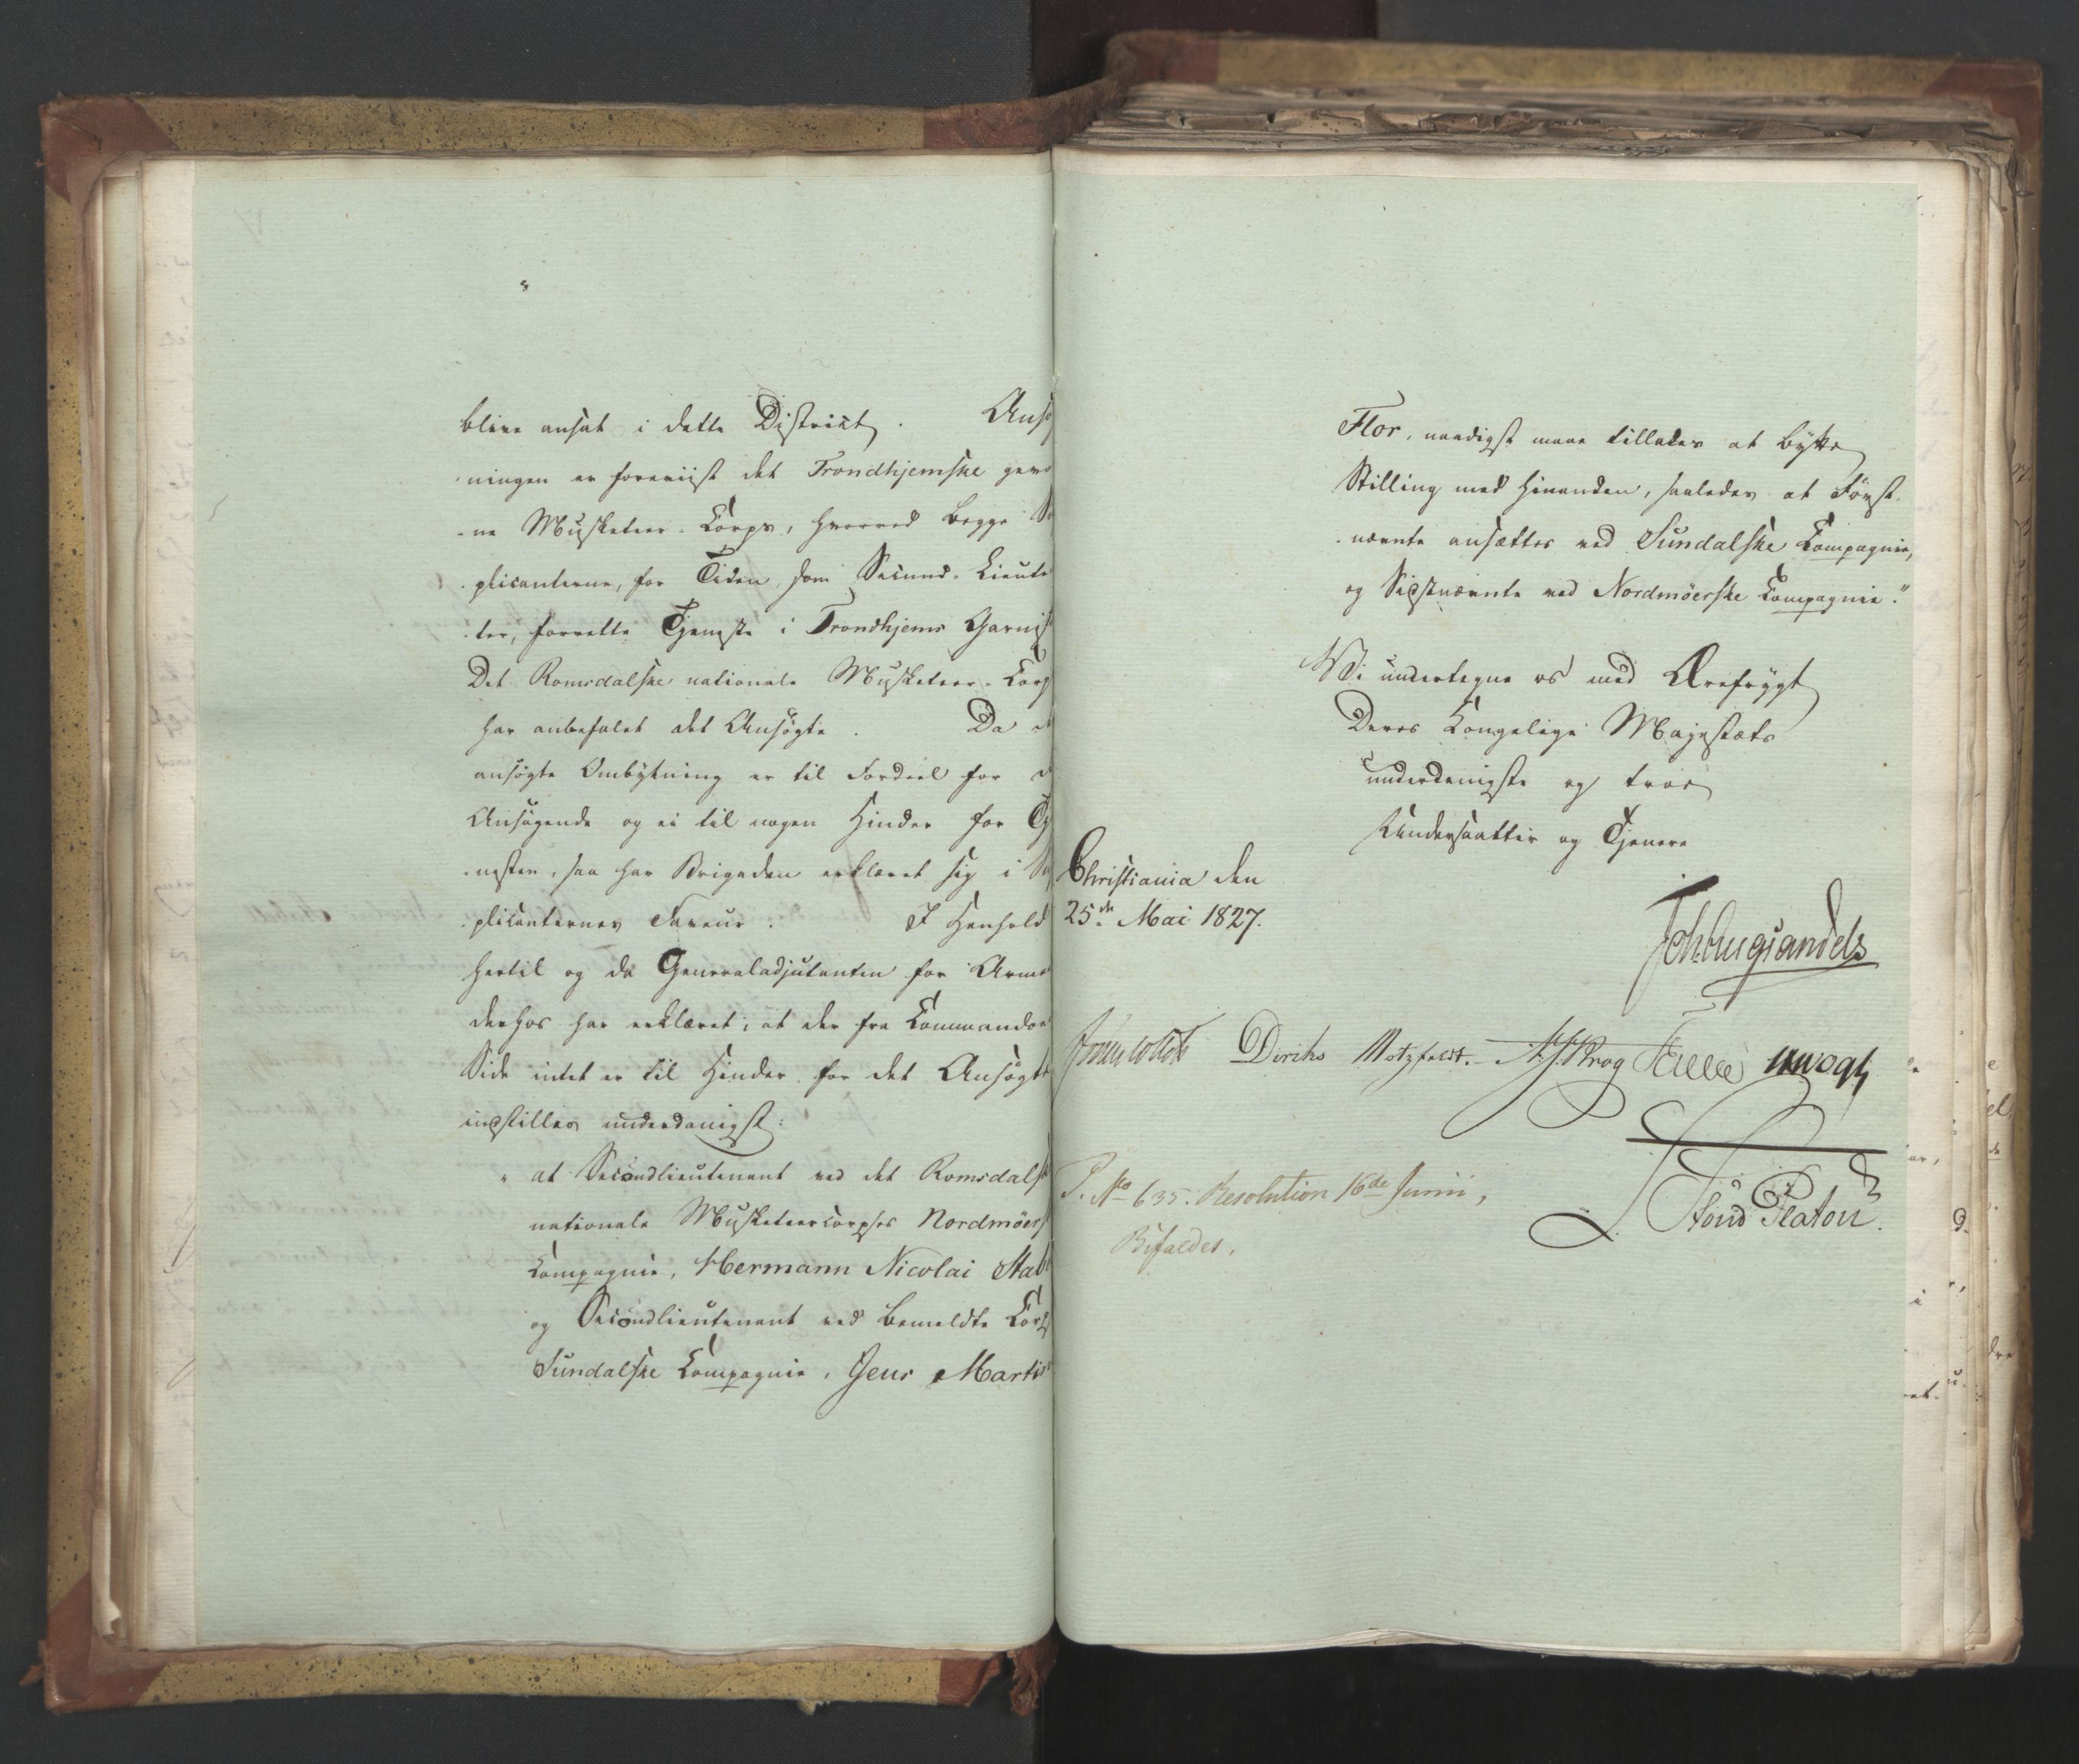 blive ansat i dette District. Ansø
ningen er foreviist det Trondhjemske gevo
-ne Musketeer-Corps, hvorved begge Su
-plicanterne, for Tiden, som Second-Lieute
-ter, forrette Tjeneste i Trondhjems Garnis
Det Romsdalske nationale Musketeer-Corp
har anbefalet det Ansøgte. Da
ansøgte Ombytning er til Fordeel for
Ansøgende og ei til nogen Hinder for Tj
-nesten, saa har Brigaden erklæret sig i Su
-plicanternes Faveur. I Henhold
hertil og da Generaladjutanten for Arme
derhos har erklæret, at der fra Commando
Side intet er til Hinder for det Ansøgte
indstilles underdanigst:
" at Secondlieutenant ved det Romsdalsk
nationale Musketeercorpses Nordmöersk
Compagnie, Hermann Nicolai Stab
og Secondlieutenant ved bemeldte Corps
Sundalske Compagnie, Jens Martin
Flor, naadigst maae tillades at bytte
Stilling med hinanden, saaledes at Först-
-nævnte ansættes ved Sundalske Compagnie,
og Sidstnævnte ved Nordmöerske Compagnie."
Vi undertegne os med Ærefrygt
Deres Kongelige Majestæts
underdanigste og troe
Undersaatter og Tjenere
Christiania den
25de Mai 1827.
Joh. Aug. Sandels
Jonas Collett Diriks Motzfeldt. Krog Fasting
P. No 635. Resolution 16de Junii,
Bifaldes.
v Stoud Platou.